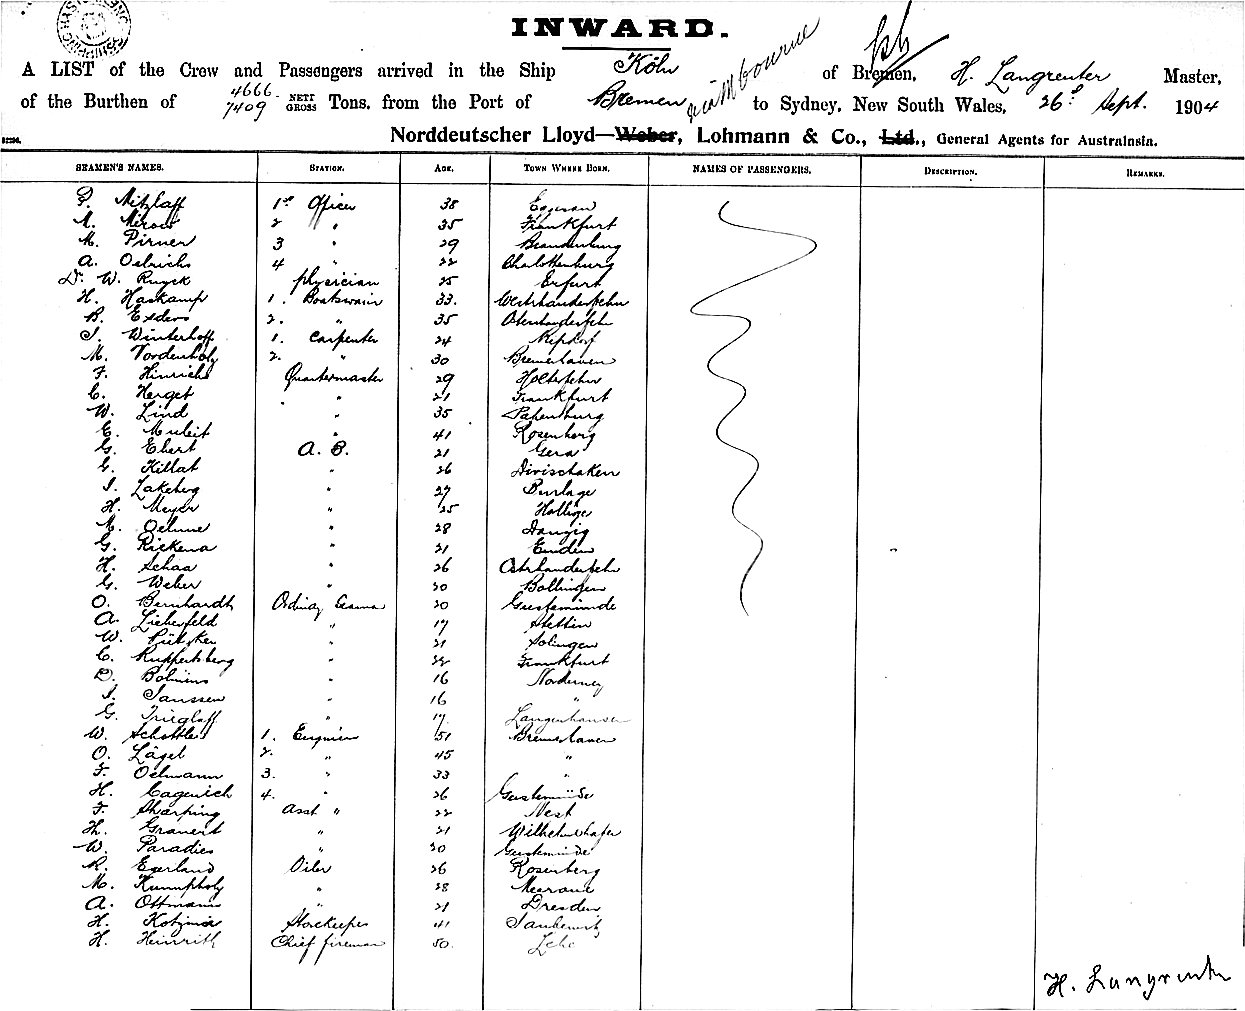 INWARD.
A LIST of the Crew and Passengers arrived in the Ship Köln of Bremen, H. Langreuter Master,
of the Burthen of 4666 NETT 7409 GROSS Tons, from the Port of Bremen via Melbourne to Sydney, New South Wales, 26th Sept. 1904
Norddeutscher Lloyd—Weber, Lohmann & Co., Ltd., General Agents for Australasia.
SEAMEN'S NAMES. STATION. AGE. TOWN WHERE BORN. NAMES OF PASSENGERS. DESCRIPTION. REMARKS.
P. Mitzlaff 1st Officer 38
A. 2 " 35 Frankfurt
M. Pirner 3 " 29 Brandenburg
A. Oelrichs 4 " 22 Charlottenburg
Dr. W. Ruyck physician 25 Erfurt
H. Haskamp 1. Boatswain 33. Westrhauderfehn
B. Exders 2. " 35
J. Winterhoff 1. Carpenter 24
M. Vordenholz 2. " 30 Bremerhaven
F. Hinrichs Quartermaster 29 Holterfehn
C. Herget " 21 Frankfurt
W. Lind " 35 Papenburg
E. Muleit " 41 Rosenberg
G. Ebert A. B. 21 Gera
G. Killat " 26
J. Lakeberg " 27 Burlage
H. Meyer " 25
A. Oelune " 28 Danzig
G. Rickena " 21 Emden
H. Schaa " 26 Ostrhauderfehn
G. Weber " 20 Bollingen
O. Bernhardt Ordinay Seama 20 Geestemünde
A. Lieberfeld " 17 Stettin
W. Pütsker " 21 Solingen
C. Ruppertsberg " 22 Frankfurt
D. " 16 Norderney
J. Janssen " 16 "
G. Trieglaff " 17. Langenhausen
W. Schottler 1. Engineer 51 Bremerhaven
O. Lägel 2. " 45 "
F. Oelmann 3. " 33 "
H. Cagewich 4. " 26 Geestemünde
F. Sharping Asst " 22 Nest
H. Granert " 21 Wilhelmshafen
W. Paradies " 20 Geestemünde
R. Egerland Oiler 26 Rosenberg
M. Kumpholz " 28 Meerane
A. Ottmann " 21 Dresden
H. Storekeeper 41
H. Heinrith Chief fireman 50. Lehe
H. Langreuter